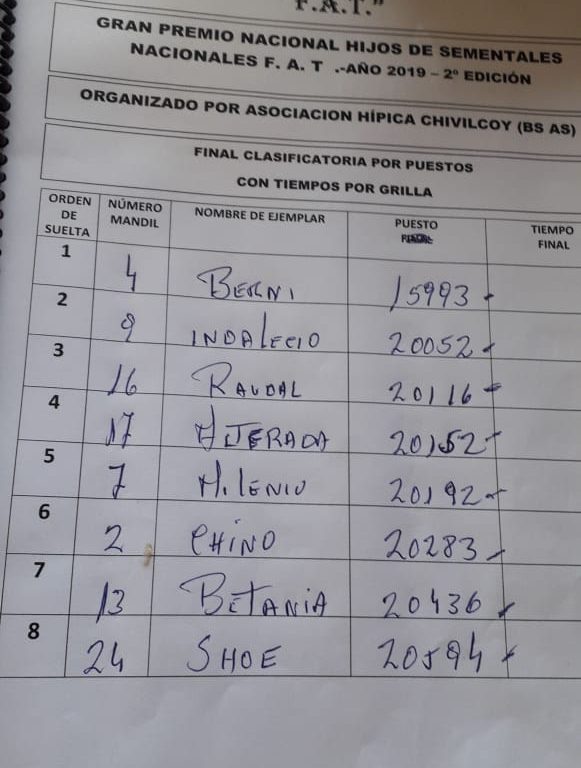 F.A.T."
GRAN PREMIO NACIONAL HIJOS DE SEMENTALES
NACIONALES F. A. T .-AÑO 2019 – 2º EDICIÓN
ORGANIZADO POR ASOCIACION HÍPICA CHIVILCOY (BS AS)
FINAL CLASIFICATORIA POR PUESTOS
CON TIEMPOS POR GRILLA
ORDEN DE SUELTA NÚMERO MANDIL NOMBRE DE EJEMPLAR PUESTO TIEMPO FINAL
1 4 BERNI 15993
2 9 INDALECIO 20052
3 16 RAUDAL 20116
4 17 20152
5 7 MILENIO 20192
6 2 CHINO 20283
7 13 BETANIA 20436
8 24 SHOE 20594